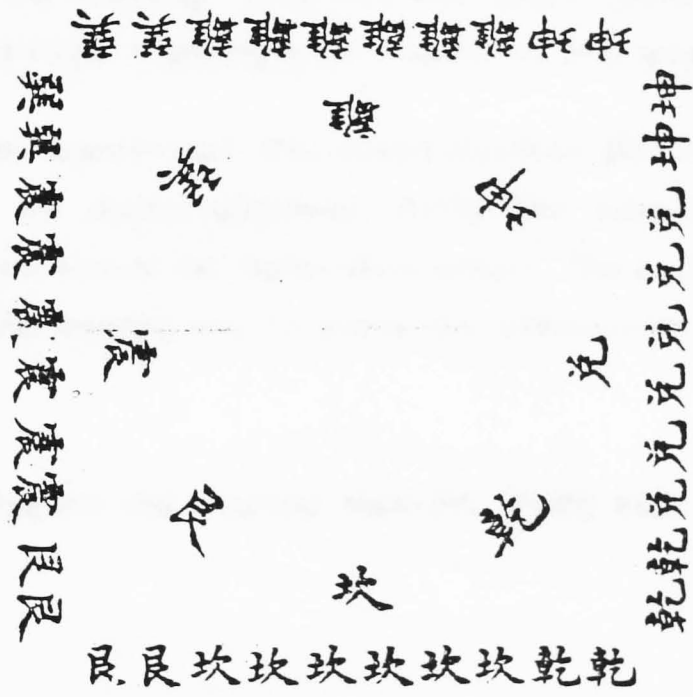 巽巽離離離離離離坤坤
巽巽震震震震震震艮艮
離
巽
坤
震
兌
艮
乾
坎
坤坤兌兌兌兌兌兌乾乾
艮艮坎坎坎坎坎坎乾乾